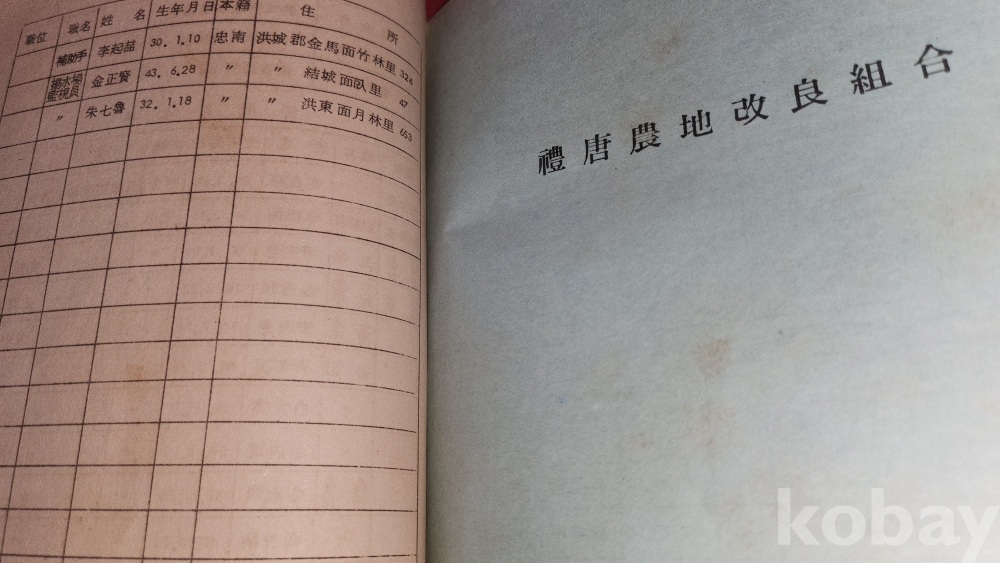 職位 職名 姓名 生年月日 本籍 住所
補助手 李起喆 30.1.10 忠南 洪城郡金馬面竹林里 324
揚水場監視員 金正賢 43.6.28 〃 〃 結城面臥里 47
〃 朱七魯 32.1.18 〃 〃 洪東面月林里 653
禮唐農地改良組合
kobay